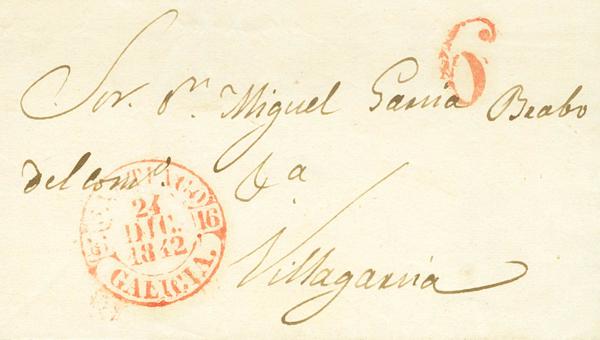 6
Sor. Dn. Miguel Garcia Brabo
del comº. &a
Villagarcia
SANTIAGO
24
DIC.
1842
16
GALICIA.